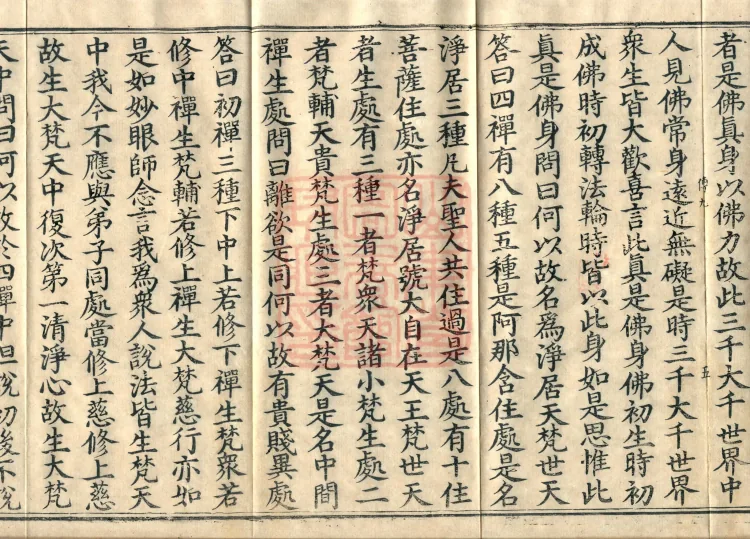 者是佛真身以佛力故此三千大千世界中
人見佛常身遠近無礙是時三千大千世界
衆生皆大歡喜言此真是佛身佛初生時初
成佛時初轉法輪時皆以此身如是思惟此
真是佛身問曰何以故名爲淨居天梵世天
答曰四禪有八種五種是阿那含住處是名
淨居三種凡夫聖人共住過是八處有十住
菩薩住處亦名淨居號大自在天王梵世天
者生處有三種一者梵衆天諸小梵生處二
者梵輔天貴梵生處三者大梵天是名中間
禪生處問曰離欲是同何以故有貴賤異處
答曰初禪三種下中上若修下禪生梵衆若
修中禪生梵輔若修上禪生大梵慈行亦如
是如妙眼師念言我爲衆人說法皆生梵天
中我今不應與弟子同處當修上慈修上慈
故生大梵天中復次第一清淨心故生大梵
天中問曰何以故於四禪中但說初後不說